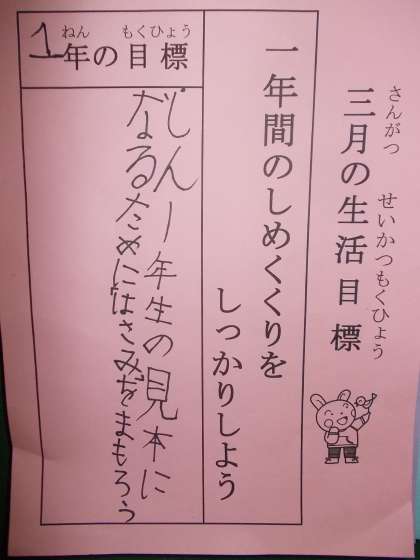 さんがつ せいかつもくひょう
三月の生活目標
一年間のしめくくりを
しっかりしよう
ねん もくひょう
1年の目標
しん一年生の見本に
なるためには まもろう